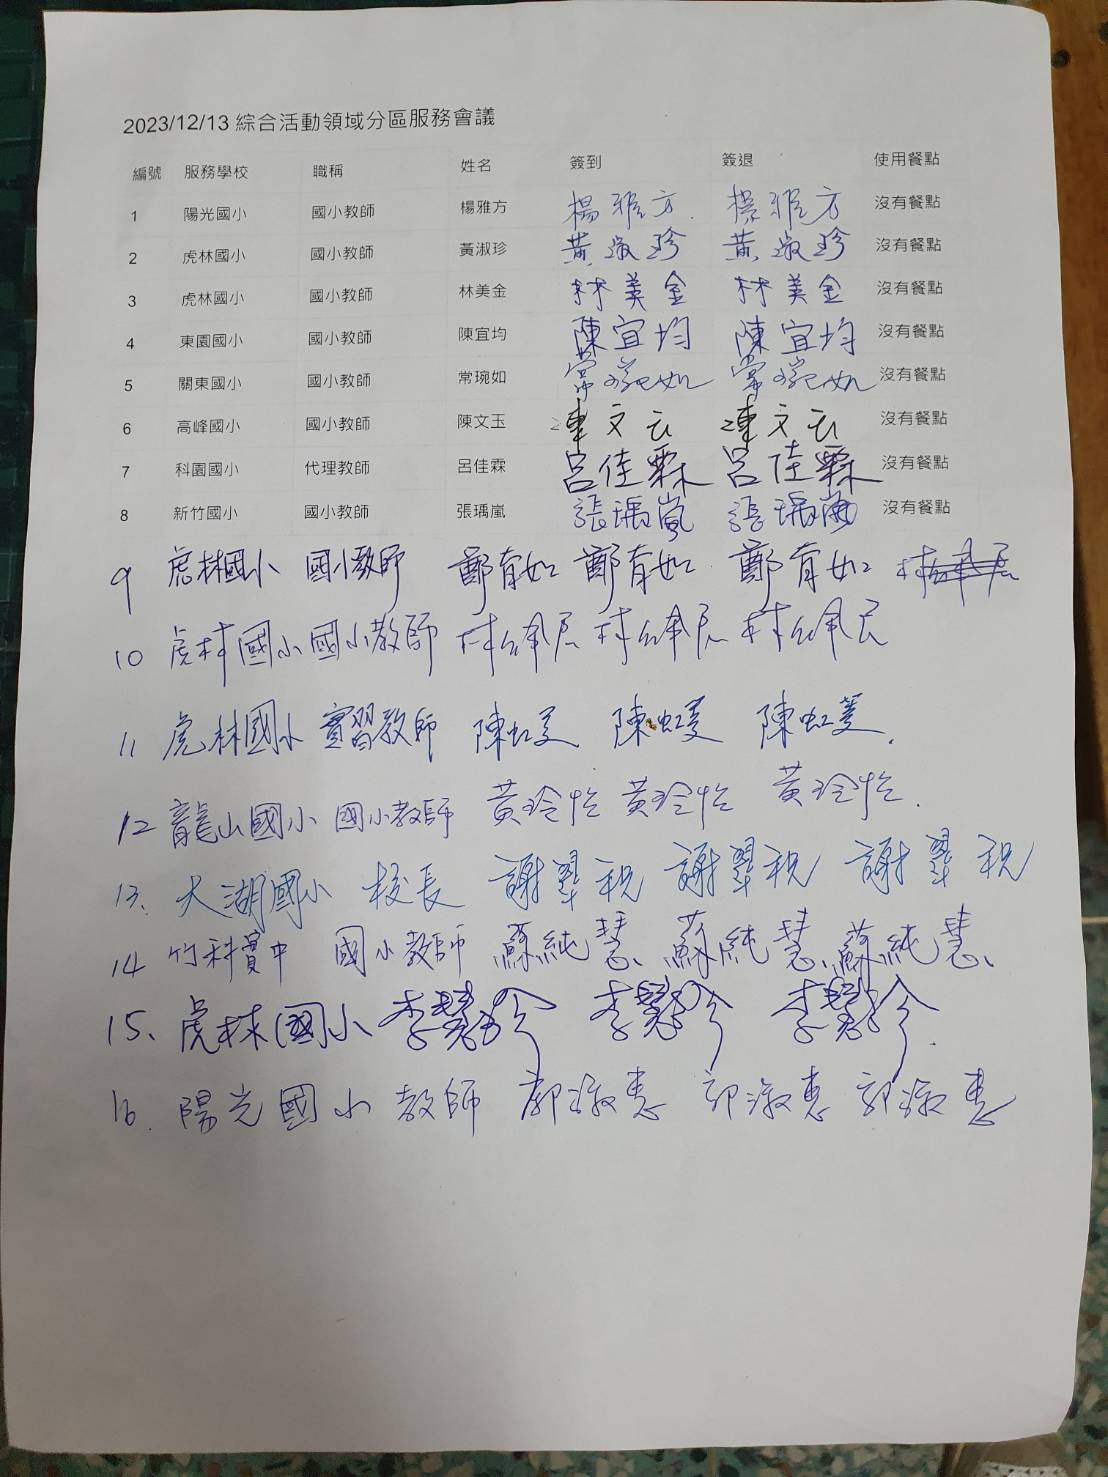 2023/12/13 綜合活動領域分區服務會議
編號 服務學校 職稱 姓名 簽到 簽退 使用餐點
1 陽光國小 國小教師 楊雅方 楊雅方 楊雅方 沒有餐點
2 虎林國小 國小教師 黃淑珍 黃淑珍 黃淑珍 沒有餐點
3 虎林國小 國小教師 林美金 林美金 林美金 沒有餐點
4 東園國小 國小教師 陳宜均 陳宜均 陳宜均 沒有餐點
5 關東國小 國小教師 常琬如 常琬如 常琬如 沒有餐點
6 高峰國小 國小教師 陳文玉 陳文玉 陳文玉 沒有餐點
7 科園國小 代理教師 呂佳霖 呂佳霖 呂佳霖 沒有餐點
8 新竹國小 國小教師 張瑀嵐 張瑀嵐 張瑀嵐 沒有餐點
9 虎林國小 國小教師 鄭育如 鄭育如 鄭育如
10 虎林國小 國小教師
11 虎林國小 實習教師 陳虹 陳虹 陳虹
12 龍山國小 國小教師 黃玲怡 黃玲怡 黃玲怡
13. 大湖國小 校長 謝翠祝 謝翠祝 謝翠祝
14 竹科實中 國小教師 蘇純慧 蘇純慧 蘇純慧
15、虎林國小 李慧玲 李慧玲 李慧玲
16. 陽光國小 教師 郭淑惠 郭淑惠 郭淑惠